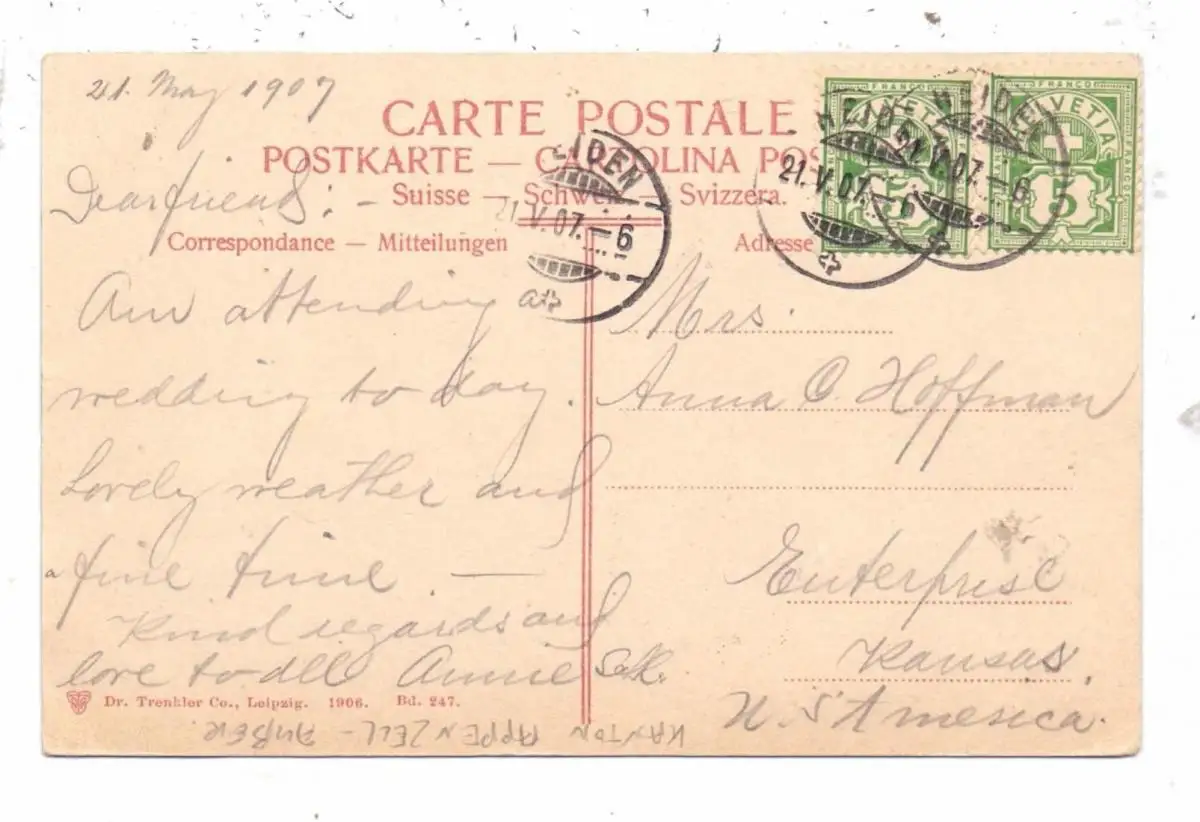 21. May 1907
CARTE POSTALE
POSTKARTE — CARTOLINA POS
Suisse — Schweiz — Svizzera.
Dear friend: -
Correspondance — Mitteilungen
Adresse
HEIDEN
21.V.07.—6
HEIDEN
21.V.07.—6
HEIDEN
21.V.07.—6
FRANCO
HELVETIA
5
FRANCO
HELVETIA
5
Am attending
wedding to day.
Lovely weather and
fine time. —
Kind regards and
love to all Annie
Mrs.
Anna C. Hoffman
Enterprise
Kansas.
U. S America.
Dr. Trenkler Co., Leipzig. 1906. Bd. 247.
KANTON APPENZELL - AUßER